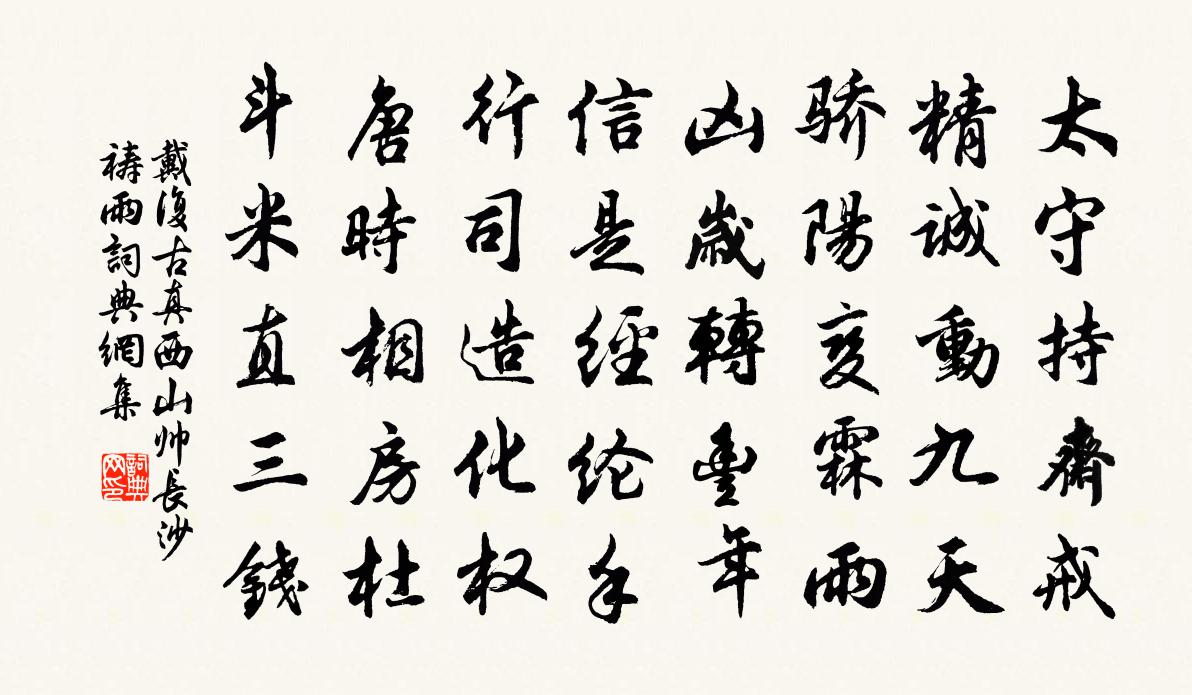 太守持齋戒
精誠動九天
骄陽变霖雨
凶歲轉豊年
信是經纶手
行司造化权
唐時相房杜
斗米直三錢
戴復古真西山帅長沙
祷雨詞典網集
詞典网印